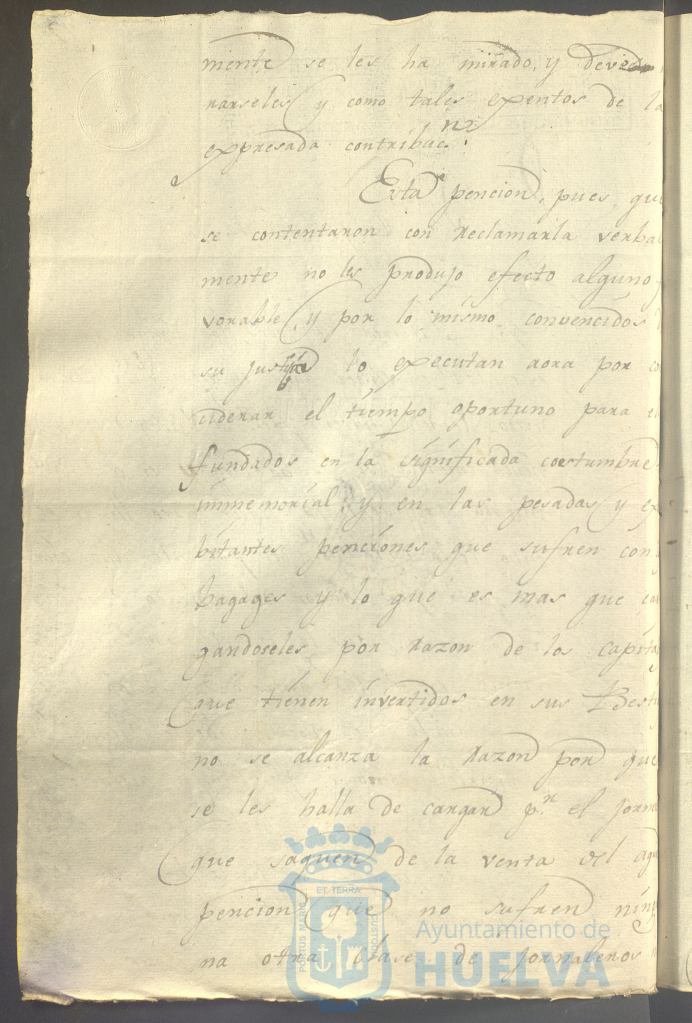 mente se les ha mirado, y deve
rarseles y como tales exentos de la
expresada contribuc.n
Esta pencion, pues, que
se contentaron con reclamarla verba
mente no les produjo efecto alguno
vorable, y por lo mismo convencidos
su justicia lo executan aora por co
ciderar el tiempo oportuno para
fundados en la significada costumbre
immemorial, y en las pesadas y ex
bitantes penciones que sufren con
bagages y lo que es mas que ca
gandoseles por razon de los capita
que tienen invertidos en sus Besti
no se alcanza la razon por que
se les halla de cargar p.r el jorna
que saquen de la venta del agu
pencion que no sufren ning
na otra clase de jornaleros
PORTUS MARIS ET TERRAE CUSTODIA
Ayuntamiento de
HUELVA